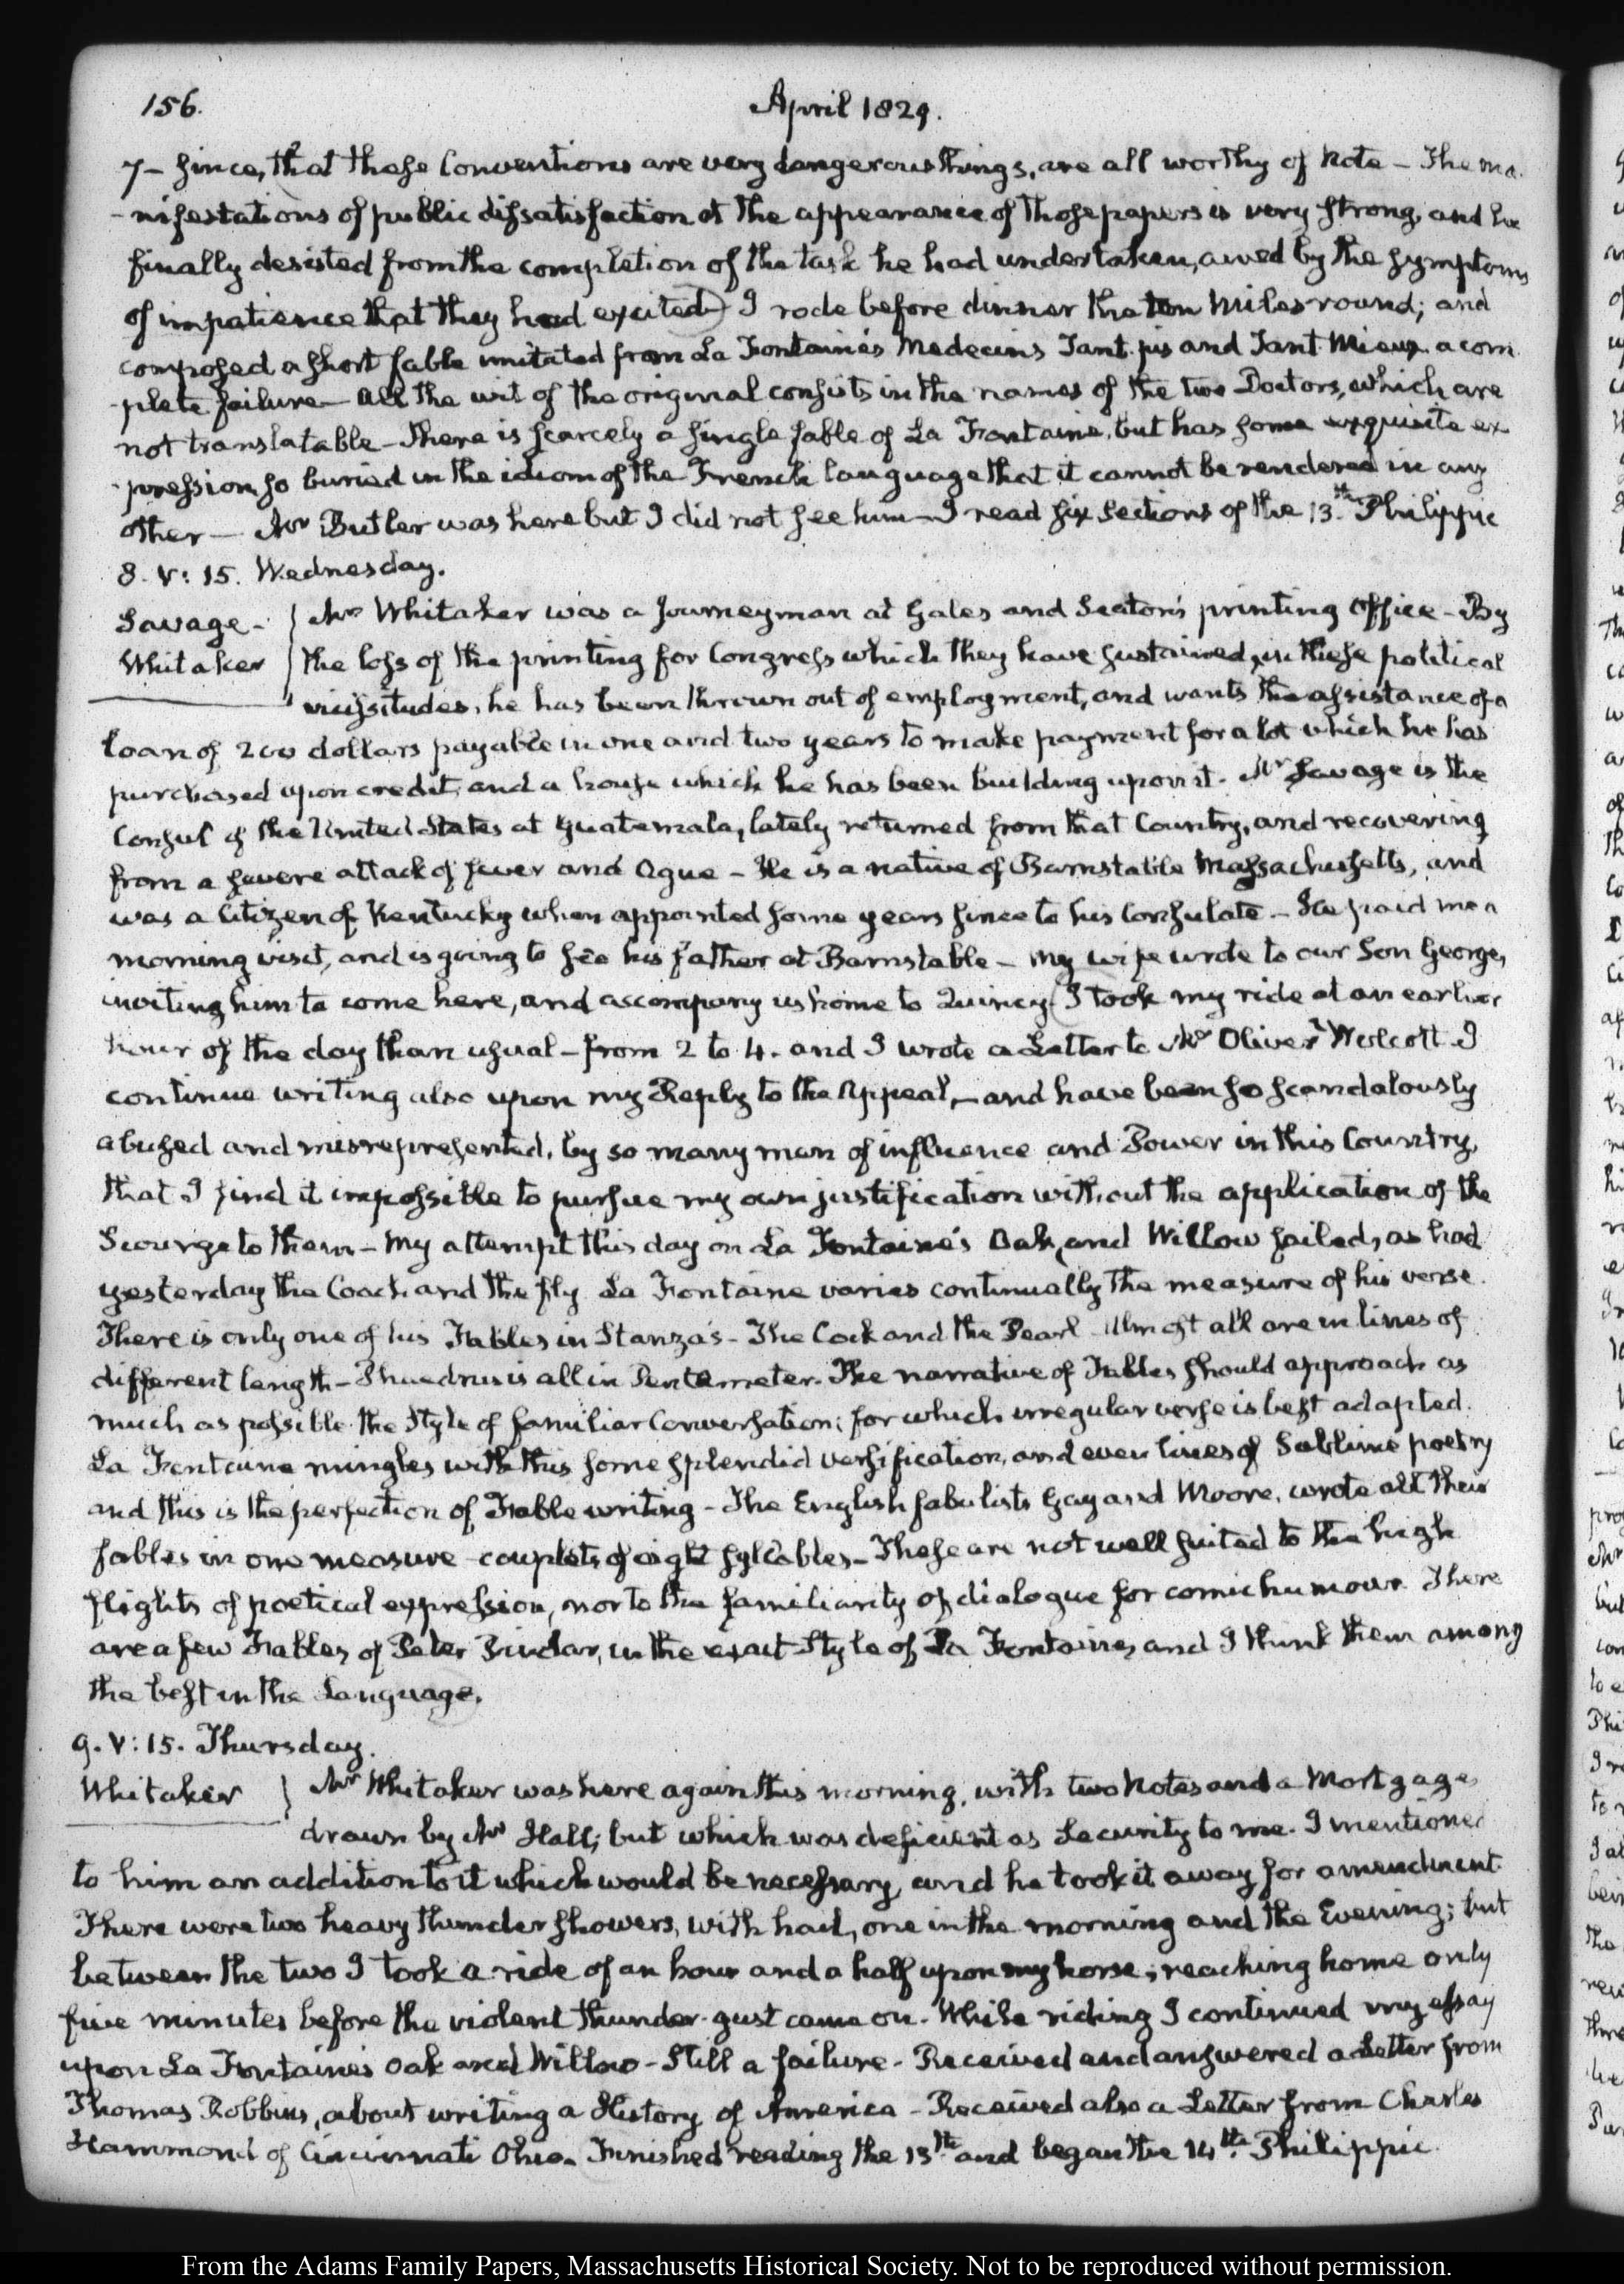 156.
April 1829.
7 - since, that these Conventions are very dangerous things, are all worthy of Note - The ma-
-nifestations of public dissatisfaction at the appearance of those papers is very strong, and he
finally desisted from the completion of the task he had undertaken, awed by the symptoms
of impatience that they had excited) I rode before dinner the ten miles round; and
composed a short fable imitated from La Fontaine's Medecins Tant-pis and Tant Mieux a com
-plete failure - All the wit of the original consists in the names of the two Doctors, which are
not translatable - There is scarcely a single fable of La Fontaine, but has some exquisite ex-
-pression so buried in the idiom of the French language that it cannot be rendered in any
other - Mr Butler was here but I did not see him - I read six sections of the 13th Philippic
8. V: 15. Wednesday.
Savage - Mr Whitaker was a Journeyman at Gales and Seaton's printing Office - By
Whitaker the loss of the printing for Congress which they have sustained, in these political
vicissitudes, he has been thrown out of employment, and wants the assistance of a
loan of 200 dollars payable in one and two years to make payment for a lot which he has
purchased upon credit, and a house which he has been building upon it. Mr Savage is the
Consul of the United States at Guatemala, lately returned from that Country, and recovering
from a severe attack of fever and Ague - He is a native of Barnstable Massachusetts, and
was a Citizen of Kentucky when appointed some years since to his Consulate - He paid me a
morning visit, and is going to see his father at Barnstable - My wife wrote to our Son George,
inviting him to come here, and accompany us home to Quincy. I took my ride at an earlier
hour of the day than usual - from 2 to 4. and I wrote a Letter to Mr Oliver Wolcott I
continue writing also upon my Reply to the Appeal, - and have been so scandalously
abused and misrepresented, by so many men of influence and Power in this Country,
that I find it impossible to pursue my own justification without the application of the
Scourge to them - My attempt this day on La Fontaine's Oak, and Willow failed, as had
yesterday the Coach and the fly La Fontaine varies continually the measure of his verse.
There is only one of his Fables in Stanza's - The Cock and the Pearl - Almost all are in lines of
different length - Phaedrus is all in Pentameter. The narrative of Fables should approach as
much as possible the Style of familiar Conversation; for which irregular verse is best adapted.
La Fontaine mingles with this some splendid versification, and even lines of Sublime poetry
and this is the perfection of Fable writing - The English fabulists Gay and Moore, wrote all their
fables in one measure - couplets of eight syllables - These are not well suited to the high
flights of poetical expression, nor to the familiarity of dialogue for comic humour. There
are a few Fables of Peter Pindar, in the exact Style of La Fontaines and I think them among
the best in the Language.
9. V: 15. Thursday.
Whitaker Mr Whitaker was here again this morning, with two Notes and a Mortgage
drawn by Mr Hall; but which was deficient as Security to me. I mentioned
to him an addition to it which would be necessary, and he took it away for amendment.
There were two heavy thunder showers, with hail, one in the morning and the Evening; but
between the two I took a ride of an hour and a half upon my horse; reaching home only
five minutes before the violent thunder-gust came on. While riding I continued my essay
upon La Fontaine's Oak and Willow - Still a failure - Received and answered a Letter from
Thomas Robbins, about writing a History of America - Received also a Letter from Charles
Hammond of Cincinnati Ohio. Finished reading the 13th and began the 14th Philippic.
From the Adams Family Papers, Massachusetts Historical Society. Not to be reproduced without permission.